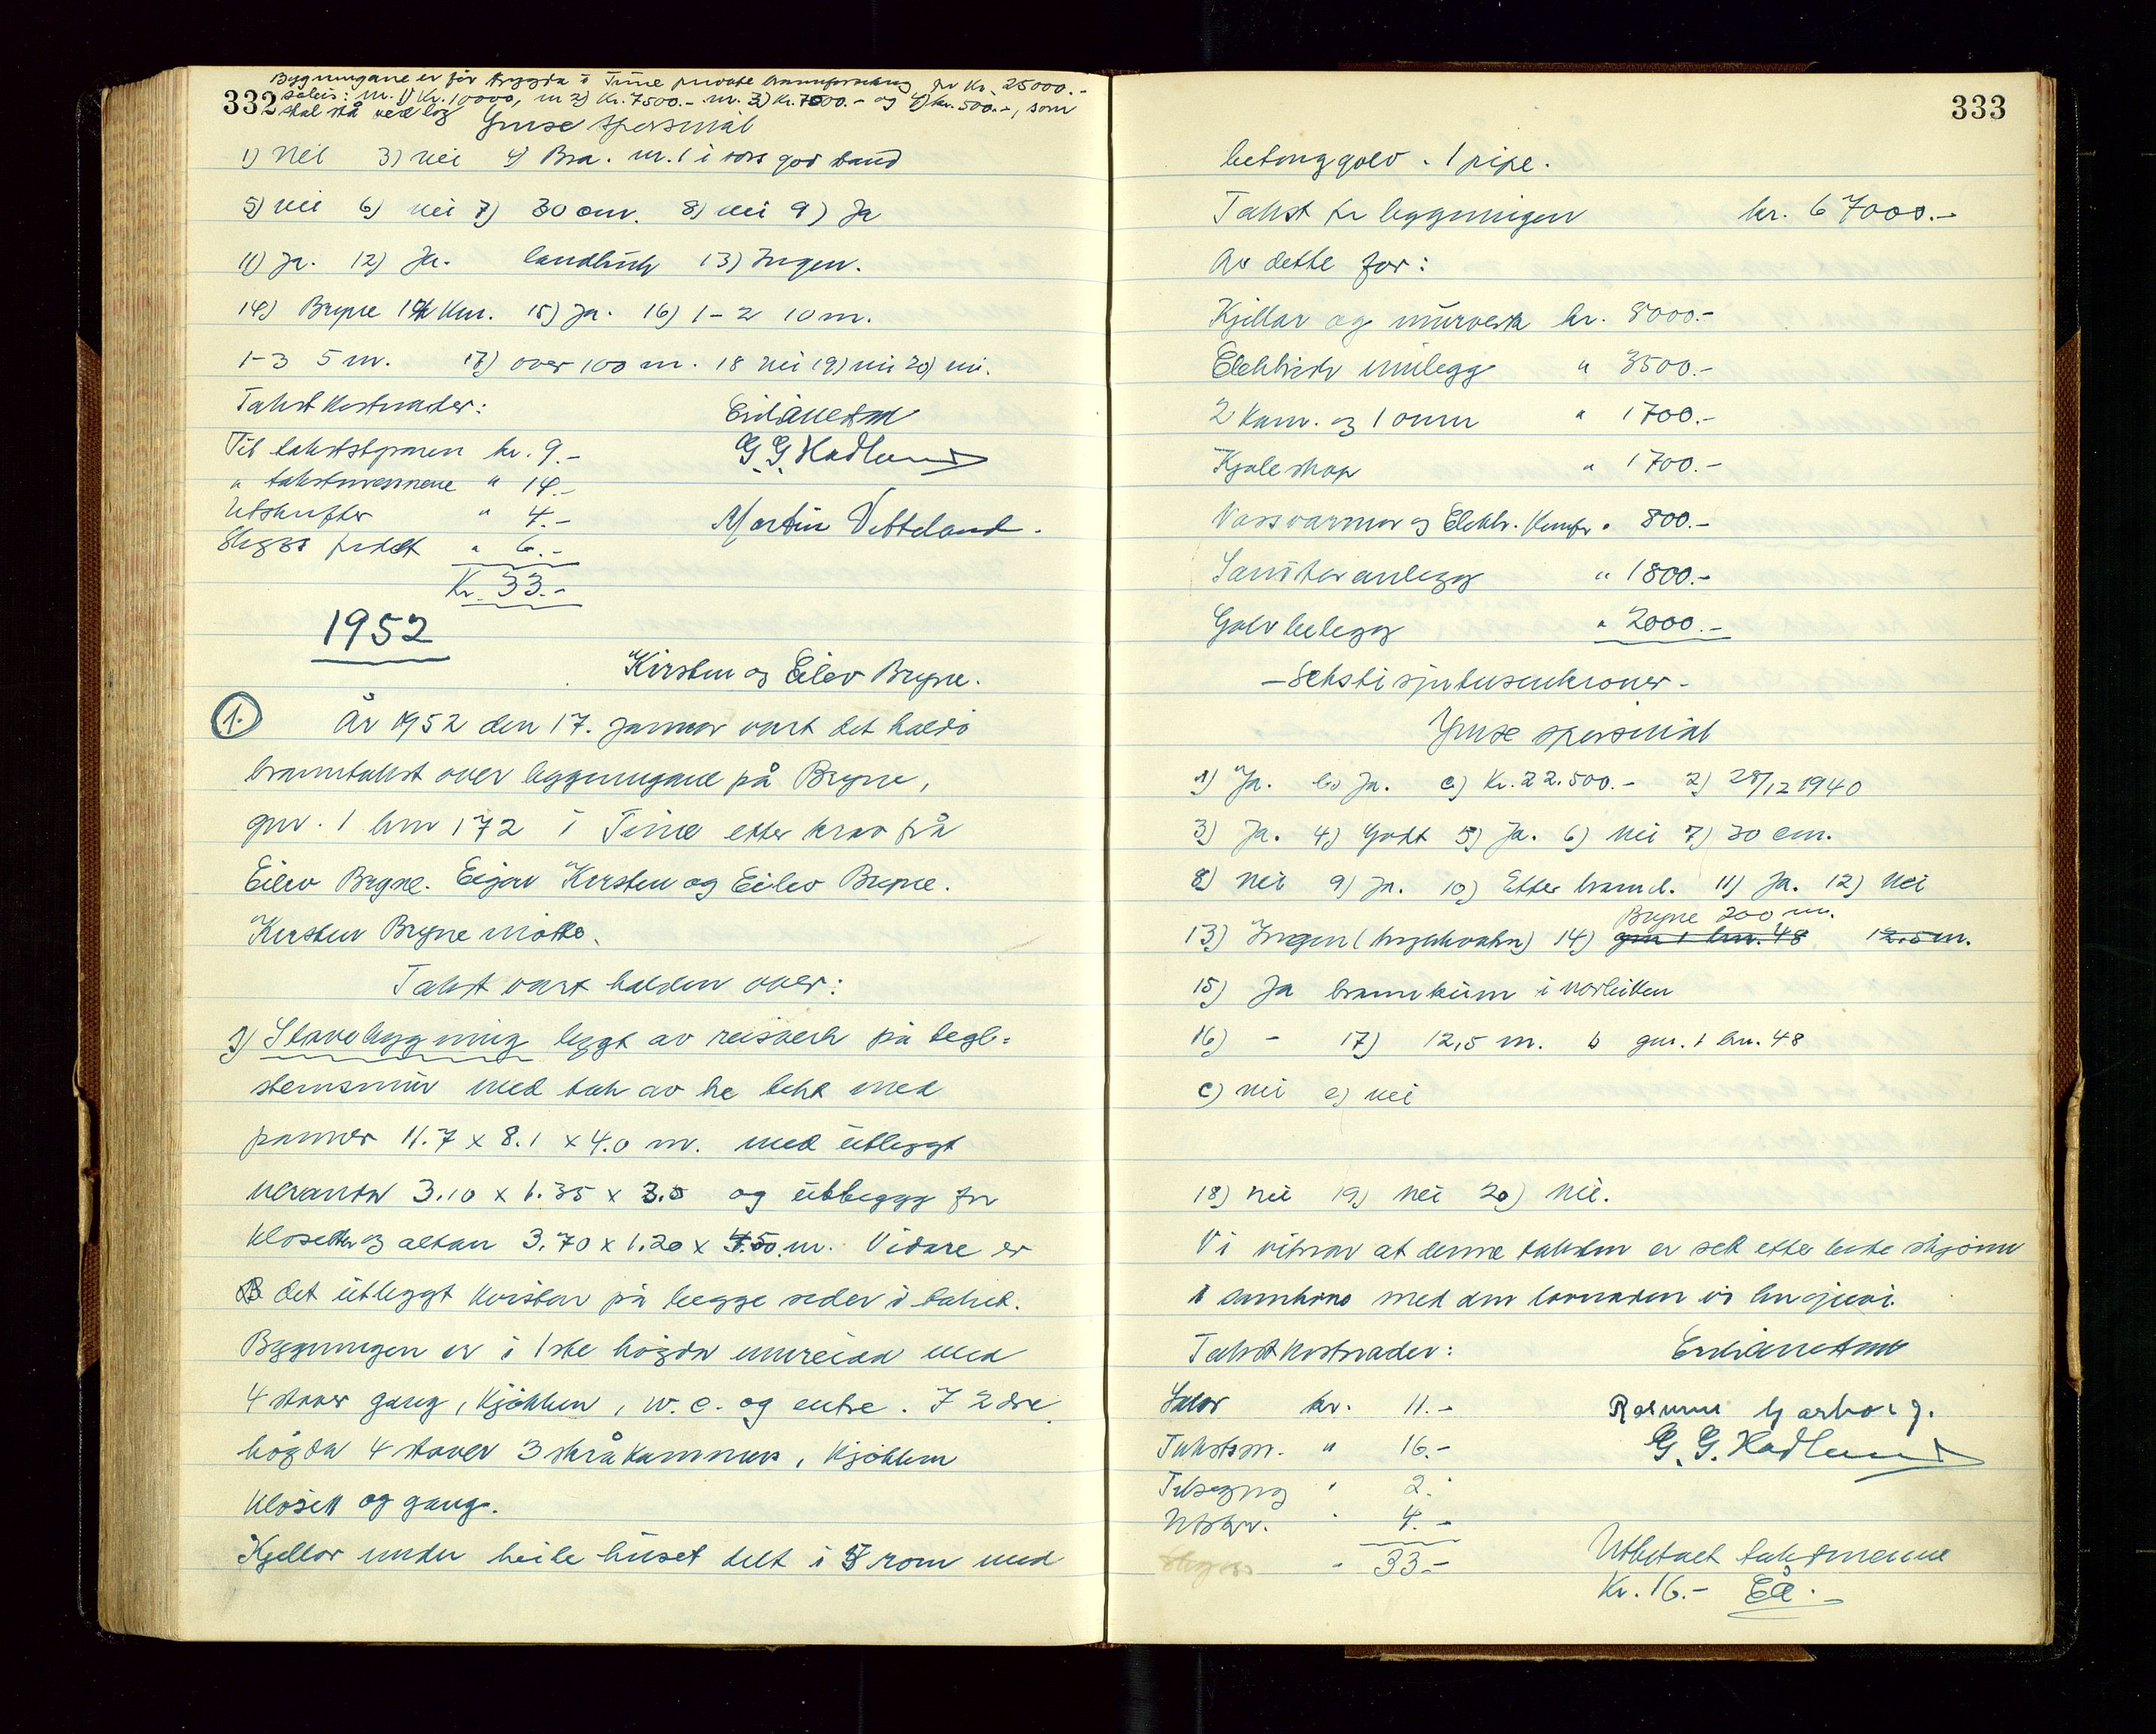 Bygningane er før trygda i Time private brannforsikring for Kr. 25000.-
332 såleis: nr. 1) Kr. 10000, nr 2) Kr. 7500.- nr. 3) Kr. 7000.- og 4) kr. 500.-, som
skal stå ved lag
Ymse spørsmål
1) Nei 3) nei 4) Bra. nr. 1 i god stand
5) nei 6) nei 7) 30 cm. 8) nei 9) Ja
11) Ja. 12) Ja. landbruk 13) Ingen.
14) Bryne km. 15) Ja. 16) 1-2 10 m.
1-3 5 m. 17) over 100 m. 18 nei 19) nei 20) nei.
Takstkostnader:
Til takststyraren kr. 9.-
" takstmennene " 14.-
Utskrifter " 4.-
Skyss " 6.-
Kr. 33.-
G. G. Hadland
Martin Vetteland.
1952
Kirsten og Eilev Bryne.
1. År 1952 den 17. januar vart det haldt
branntakst over bygningane på Bryne,
gnr. 1 bnr 172 i Time etter krav frå
Eilev Bryne. Eigar Kirsten og Eilev Bryne.
Kirsten Bryne møtte.
Takst vart halden over:
1) Stovebygning bygt av reisverk på tegl-
steinsmur med tak av tre tekt med
panner 11.7 x 8.1 x 4.0 m. med utbygt
veranda 3.10 x 1.35 x 3.5 og utbygg for
klosett og altan 3.70 x 1.20 x 4.50 m. Vidare er
det utbygt kvistar på begge sider i taket.
Bygningen er i 1ste høgda innreidd med
4 stover gang, kjøkken, w.c. og entre. I 2dre
høgda 4 stover 3 skråkammers, kjøkken
klosett og gang.
Kjellar under heile huset delt i 5 rom med
333
betonggolv. 1 pipe.
Takst for bygningen kr. 67000.-
Av dette for:
Kjellar og murverk kr. 8000.-
Elektrisk innlegg " 3500.-
2 kam. og 1 omn " 1700.-
Kjøleskap " 1700.-
Vassvarmar og Elektr. Komfyr " 800.-
Sanitæranlegg " 1800.-
Golvbelegg " 2000.-
- Sekstisjutusenkroner -
Ymse spørsmål
1) Ja. b) Ja. c) Kr. 22.500.- 2) 28/12 1940
3) Ja. 4) Godt 5) Ja. 6) nei 7) 30 cm.
8) nei 9) Ja. 10) Etter brannl. 11) Ja. 12) nei
Bryne 200 m.
13) Ingen 14) gnr 1 bnr. 48 12.5 m.
15) Ja brannkum i nærleiken
16) - 17) 12,5 m. b gnr. 1 bnr. 48
c) nei e) nei
18) nei 19) nei 20) nei.
Vi vitnar at denne taksten er sett etter beste skjønn
i samhøve med den lovnaden vi har gjeve.
Takstkostnader:
Salær kr. 11.-
Takstm. " 16.-
Tilsegng " 2.-
Utskr. " 4.-
Skyss " 33.-
Rasmus Garborg.
G. G. Hadland
Utbetalt takstmennene
Kr. 16.- EÅ.